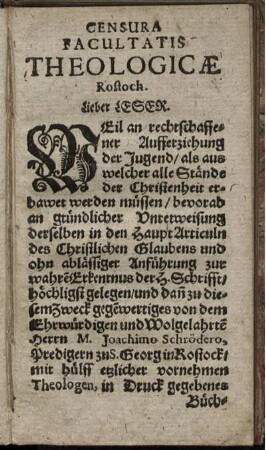 CENSURA
FACULTATIS
THEOLOGICÆ
Rostoch.
Lieber LESER.
WEil an rechtschaffe-
ner Aufferziehung
der Jugend/ als aus
welcher alle Stände
der Christenheit er-
bawet werden müssen/ bevorab
an gründlicher Vnterweisung
derselben in den Haupt Articuln
des Christlichen Glaubens und
ohn ablässiger Anführung zur
wahrẽ Erkentnus der H. Schrifft/
höchligst gelegen/ und dañ zu die-
sem Zweck gegẽwertiges von dem
Ehrwürdigen und Wolgelahrtẽ
Herrn M. Joachimo Schrödero,
Predigern zu S. Georg in Rostock/
mit hülff etzlicher vornehmen
Theologen, in Druck gegebenes
Büch-